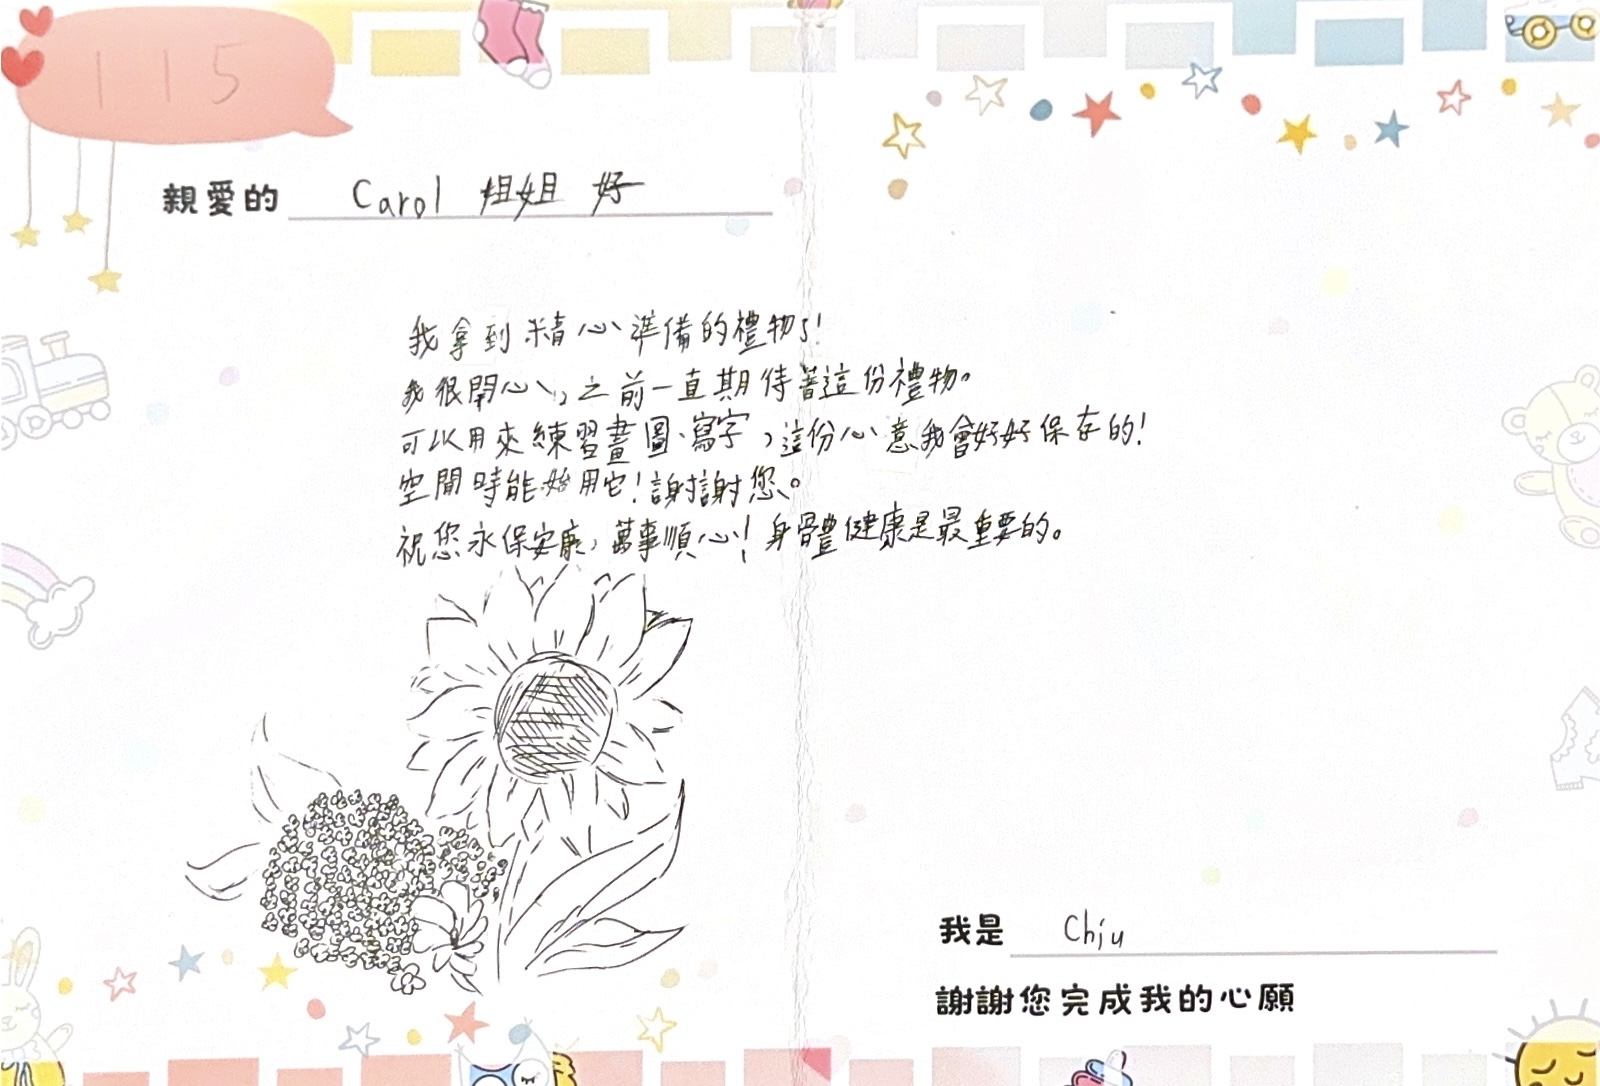 115
親愛的 Carol 姐姐 好
我拿到精心準備的禮物了!
我很開心,之前一直期待著這份禮物。
可以用來練習畫圖、寫字,這份心意我會好好保存的!
空閒時能始用它!謝謝您。
祝您永保安康,萬事順心!身體健康是最重要的。
我是 Chiu
謝謝您完成我的心願